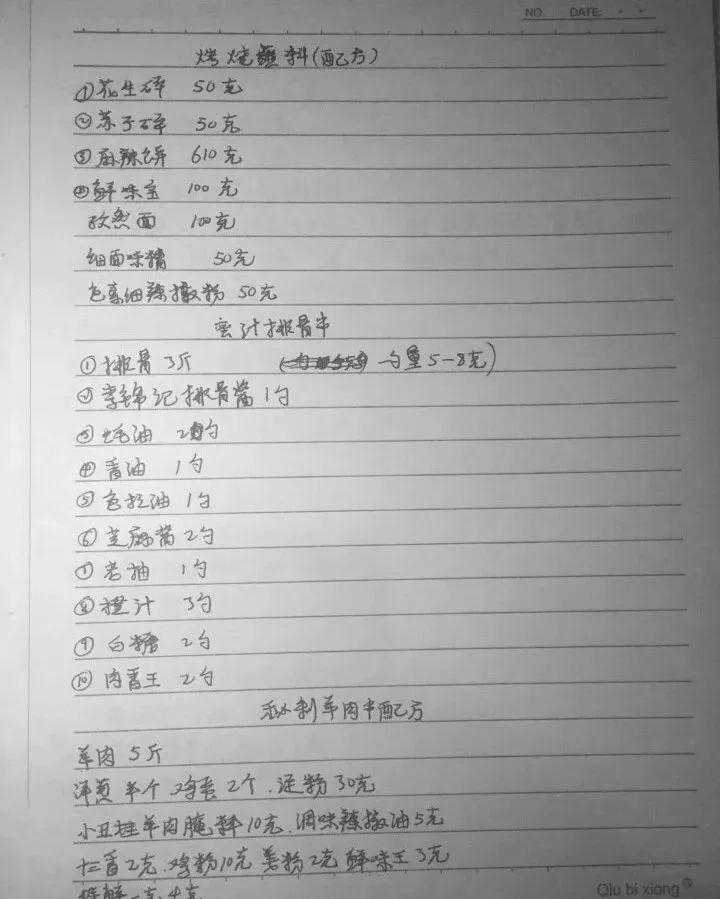 NO. DATE:
烤烧蘸料(配方)
①花生碎 50克
②苏子碎 50克
③麻辣饼 610克
④鲜味宝 100克
孜然面 100克
细面味精 50克
色素细辣椒粉 50克
蜜汁排骨串
①排骨 3斤 勺量5-8克)
②李锦记排骨酱 1勺
③蚝油 2勺
④香油 1勺
⑤色拉油 1勺
⑥芝麻酱 2勺
⑦老抽 1勺
⑧橙汁 3勺
⑨白糖 2勺
⑩肉香王 2勺
羊肉串配方
羊肉 5斤
洋葱 半个 鸡蛋 2个、淀粉 30克
小丑娃羊肉腌料10克、调味辣椒油5克
十三香2克、鸡粉10克 姜粉2克 鲜味王 3克
Qiu bi xiong